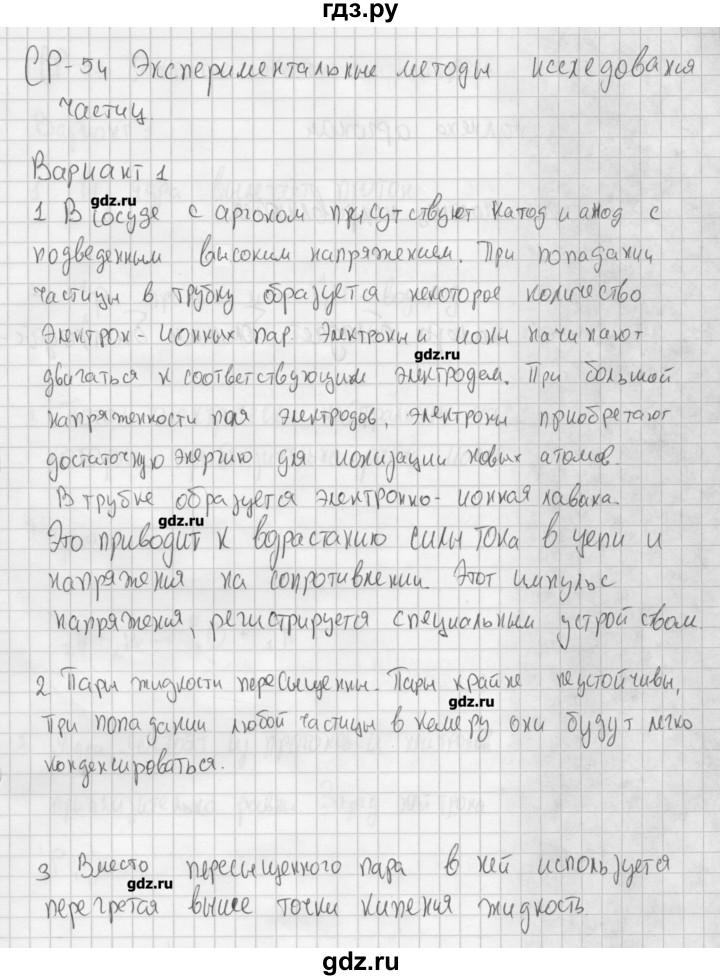 гдз.ру
СР-54 Экспериментальные методы исследования
частиц.
Вариант 1
gdz.ru
1 В сосуде с аргоном присутствуют катод и анод с
подведенным высоким напряжением. При попадании
частицы в трубку образуется некоторое количество
электрон-ионных пар. Электроны и ионы начинают
gdz.ru
двигаться к соответствующим электродам. При большой
напряженности поля электродов, электроны приобретают
достаточную энергию для ионизации новых атомов.
В трубке образуется электронно-ионная лавина.
gdz.ru
Это приводит к возрастанию силы тока в цепи и
напряжения на сопротивлении. Этот импульс
напряжения, регистрируется специальным устройством.
2 Пары жидкости пересыщены. Пары крайне неустойчивы,
gdz.ru
при попадании любой частицы в камеру они будут легко
конденсироваться.
3 Вместо пересыщенного пара в ней используется
gdz.ru
перегретая выше точки кипения жидкость.
гдз.ру